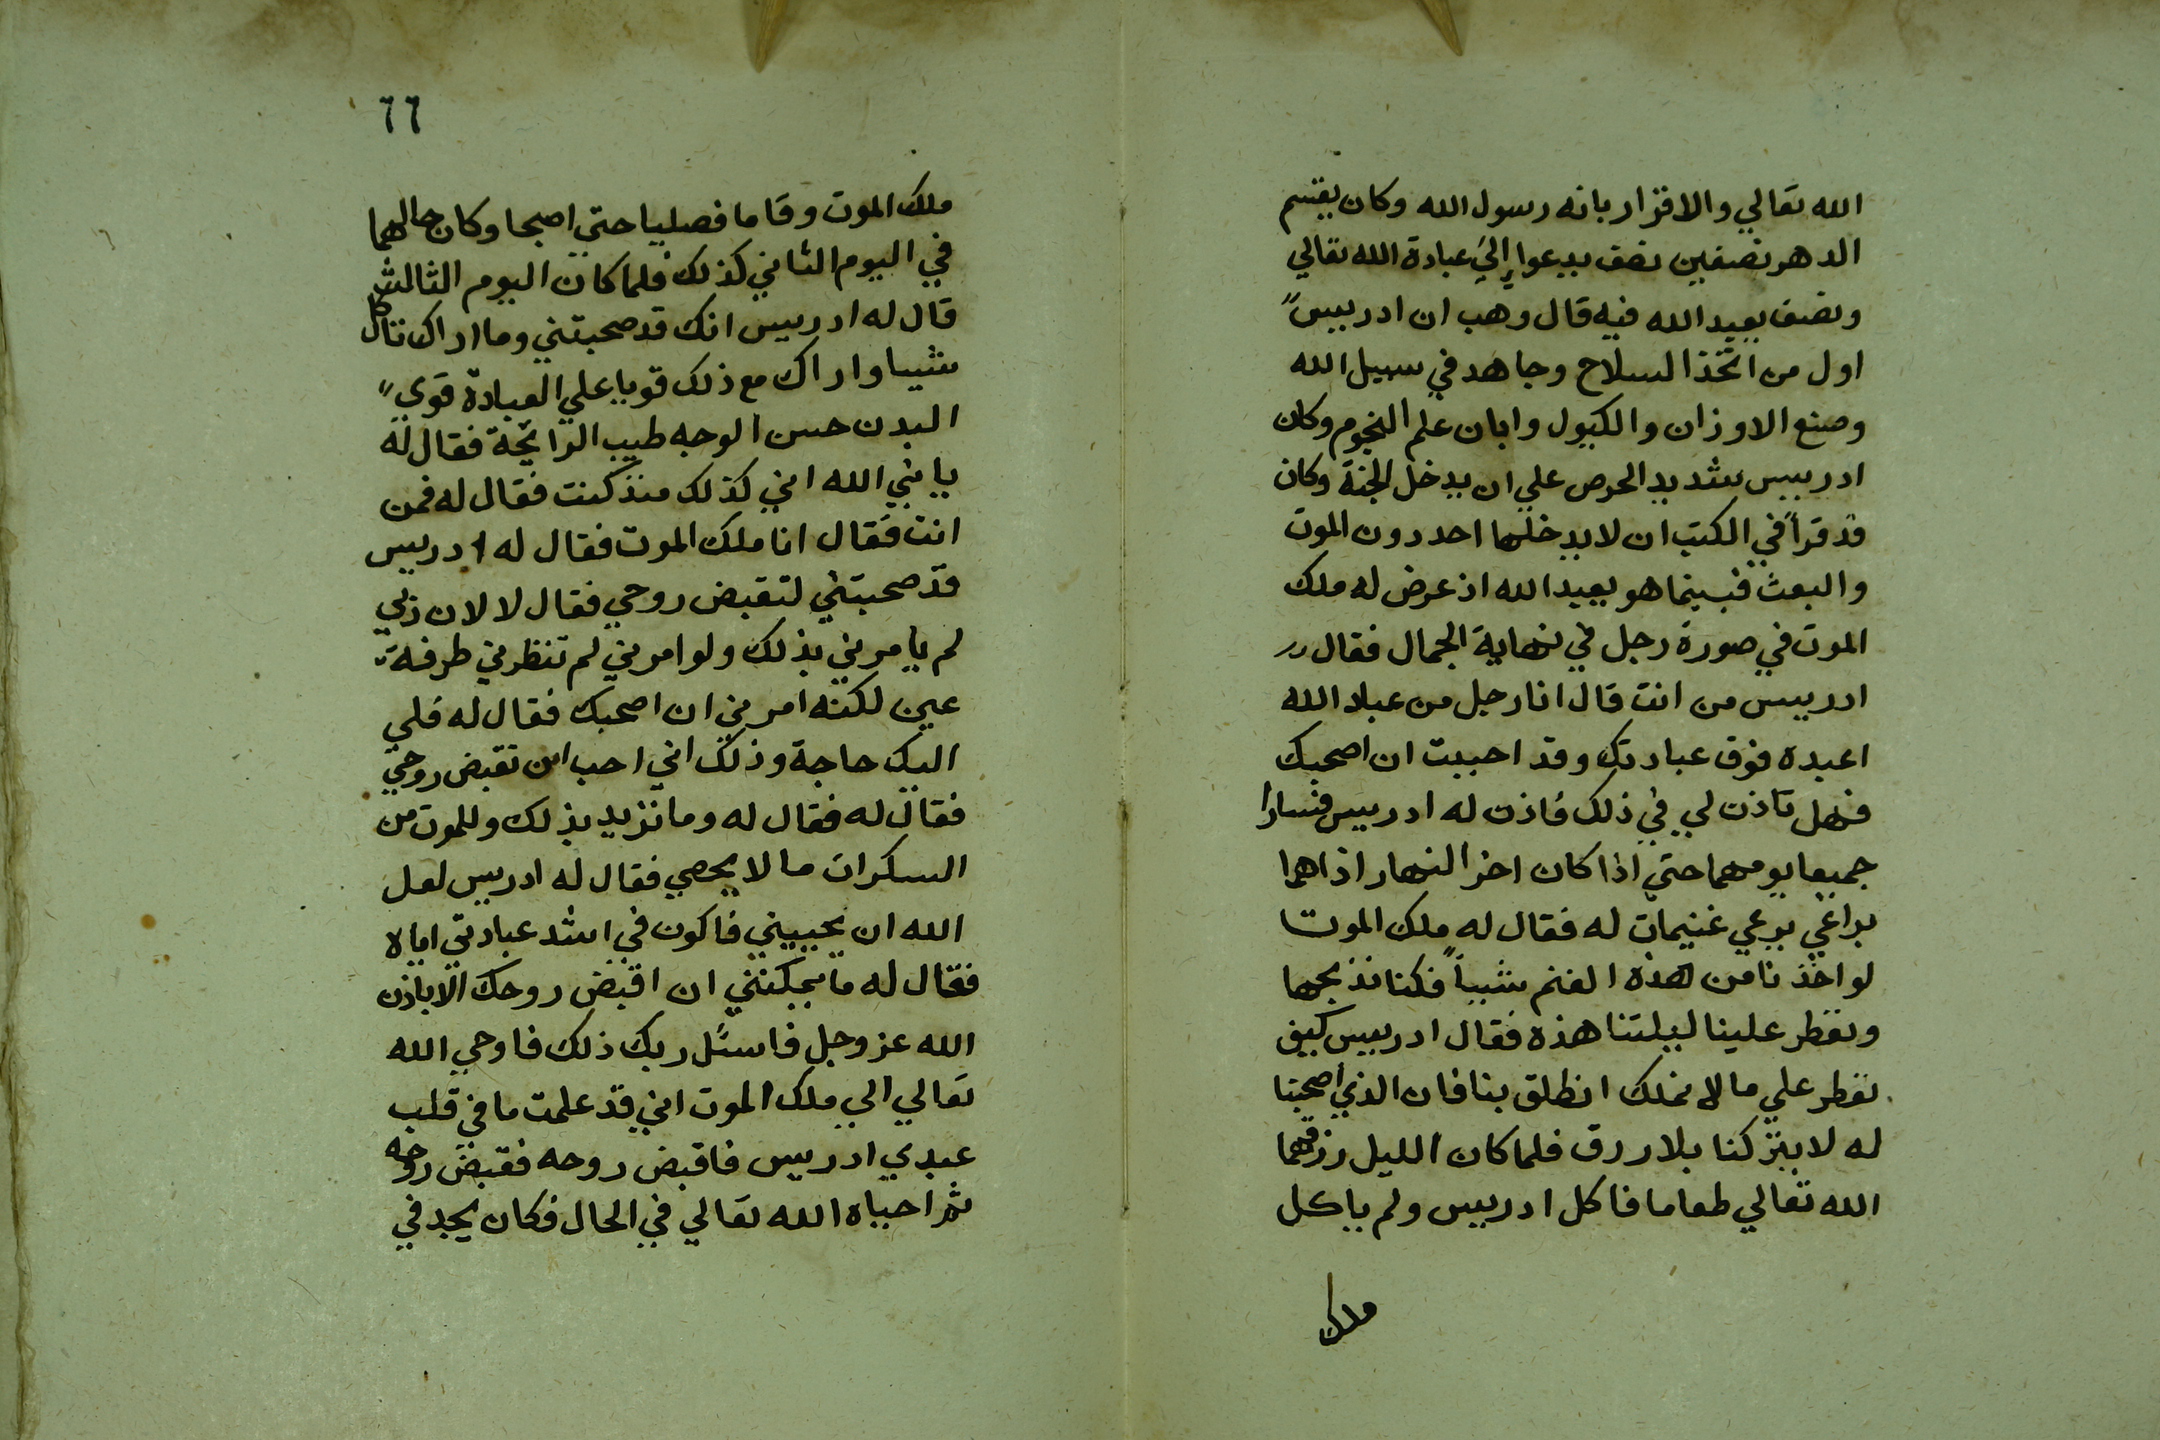 الله تعالي والاقرار بانه رسول الله وكان يقسم
الدهر نصفين نصف يدعوا إلي عبادة الله تعالي
ونصف يعبد الله فيه قال وهب ان ادريس
اول من اتخذ السلاح وجاهد في سبيل الله
وصنع الاوزان والكيول وابان علم النجوم وكان
ادريس شديد الحرص علي ان يدخل الجنة وكان
قد قرأ في الكتب ان لا يدخلها احد دون الموت
والبعث فبينما هو يعبد الله اذ عرض له ملك
الموت في صورة رجل في نهاية الجمال فقال
ادريس من انت قال انا رجل من عباد الله
اعبده فوق عبادتك وقد احببت ان اصحبك
فهل تاذن لي في ذلك فاذن له ادريس فسارا
جميعا يومهما حتي اذا كان اخر النهار اذا هما
براعي يرعي غنيمات له فقال له ملك الموت
لو اخذنا من هذه الغنم شيأ فكنا نذبحها
ونفطر علينا ليلتنا هذه فقال ادريس كيف
نفطر علي ما لا نملك انطلق بنا فان الذي اصبحنا
له لا يتركنا بلا رزق فلما كان الليل رزقهما
الله تعالي طعاما فاكل ادريس ولم ياكل
ملك
٦٦
ملك الموت وقاما فصليا حتي اصبحا وكان حالهما
في اليوم الثاني كذلك فلما كان اليوم الثالث
قال له ادريس انك قد صحبتني وما اراك تاكل
شيا واراك مع ذلك قويا علي العبادة قوي
البدن حسن الوجه طيب الرائحة فقال له
يا نبي الله اني كذلك منذ كنت فقال له فمن
انت فقال انا ملك الموت فقال له ادريس
قد صحبتني لتقبض روحي فقال لا لان ربي
لم يامرني بذلك ولو امرني لم تنظرني طرفة
عين لكنه امرني ان اصحبك فقال له فلي
اليك حاجة وذلك اني احب ان تقبض روحي
فقال له فقال له وما تريد بذلك وللموت من
السكرات ما لا يحصي فقال له ادريس لعل
الله ان يحييني فاكون في اشد عبادتي اياه
فقال له ما يمكنني ان اقبض روحك الا باذن
الله عز وجل فاسئل ربك ذلك فاوحي الله
تعالي الي ملك الموت اني قد علمت ما في قلب
عبدي ادريس فاقبض روحه فقبض روحه
ثم احياه الله تعالي في الحال فكان يجد في